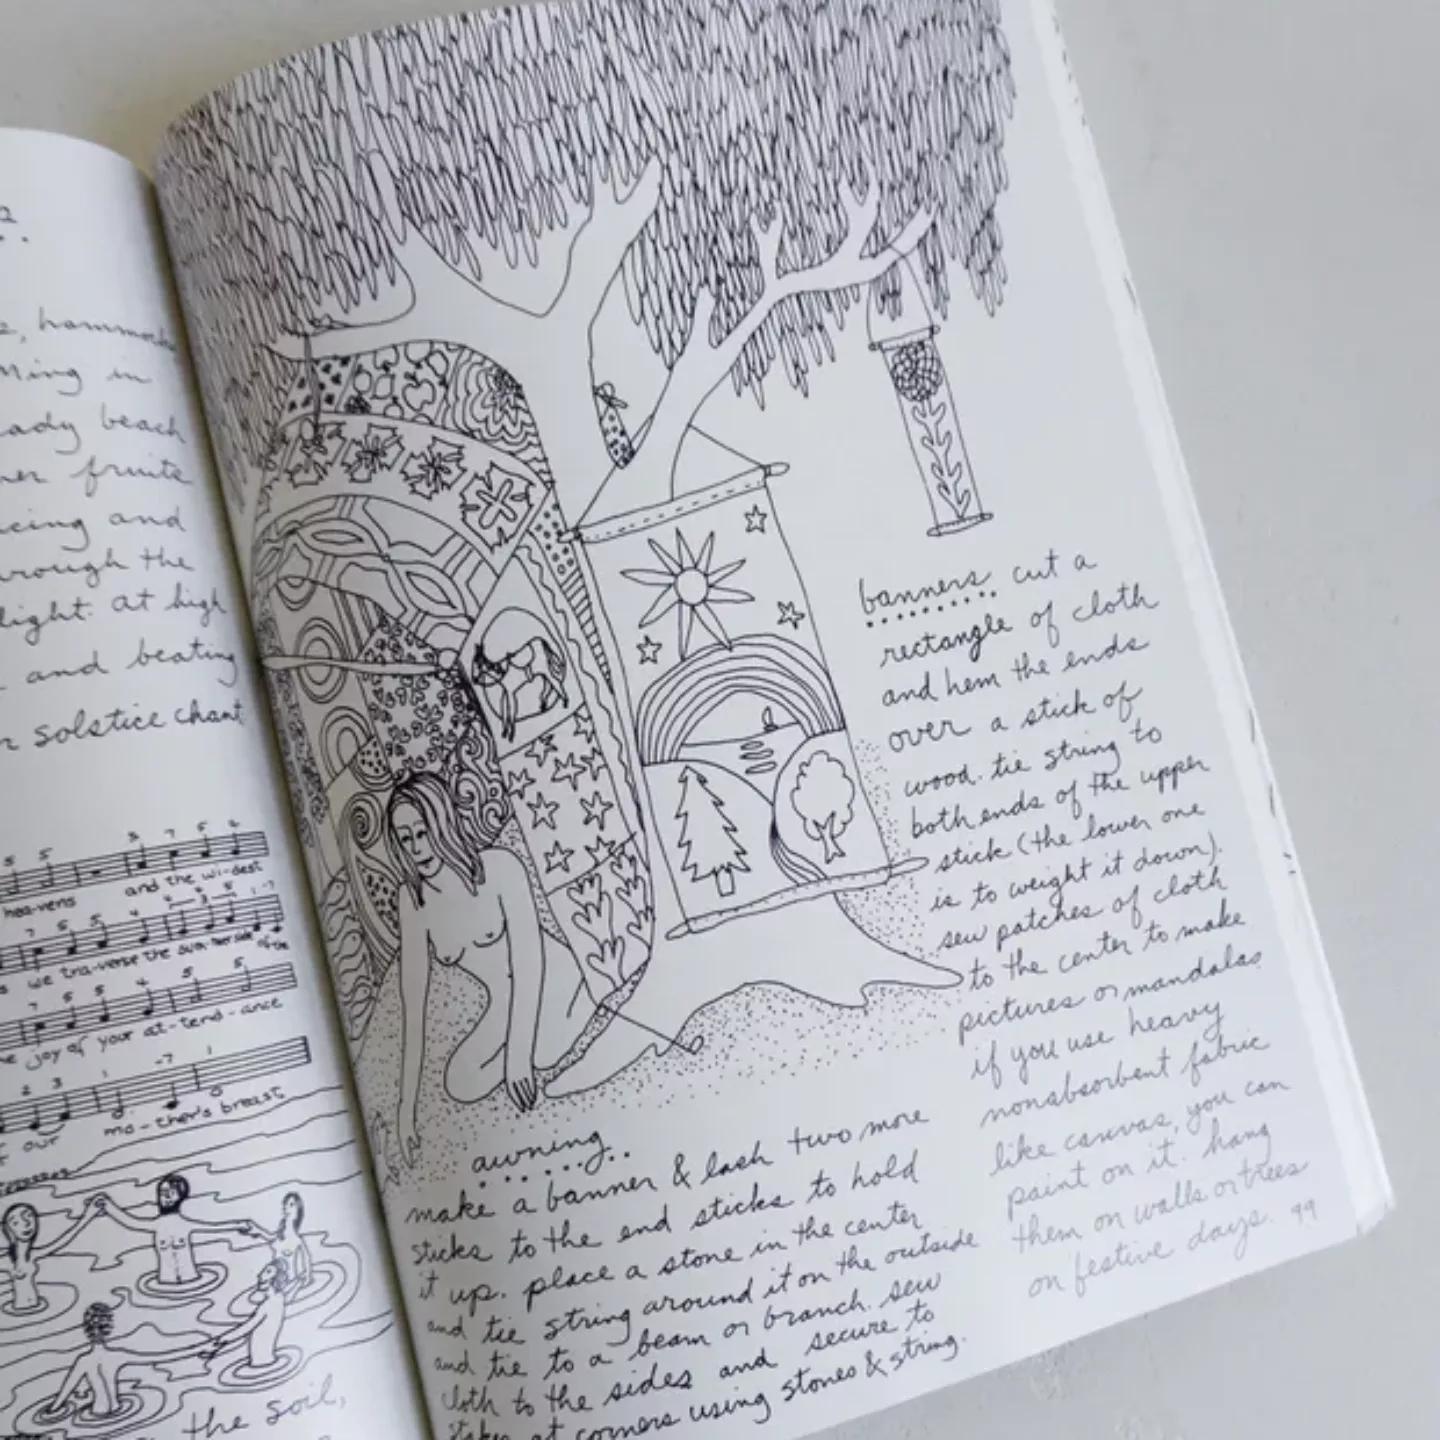 hammocks
in
beach
fruits
and
through the
light. at high
and beating
solstice chant
hea-vens and the wi-dest
we tra-verse the
of the
joy of your at-tend-ance
our mo-ther's breast
the soil,
banners cut a
rectangle of cloth
and hem the ends
over a stick of
wood. tie string to
both ends of the upper
stick (the lower one
is to weight it down).
sew patches of cloth
to the center to make
pictures or mandalas
if you use heavy
nonabsorbent fabric
like canvas, you can
paint on it. hang
them on walls or trees
on festive days. 99
awning
make a banner & lash two more
sticks to the end sticks to hold
it up. place a stone in the center
and tie string around it on the outside
and tie to a beam or branch. sew
cloth to the sides and secure to
at corners using stones & string.